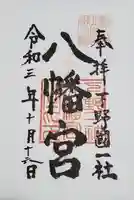 奉拝 下野國一社
八幡宮
令和三年十月十六日